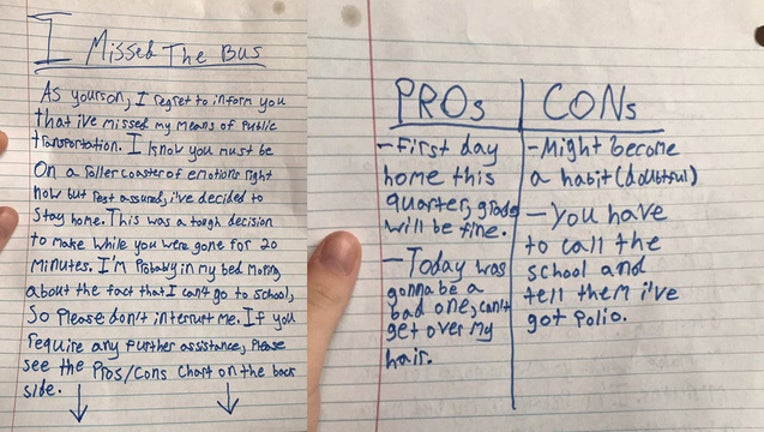 I Missed The Bus
As yourson, I regret to inform you
that i've missed my means of Public
transportation. I know you must be
On a roller coaster of emotions right
now but rest assured, i've decided to
Stay home. This was a tough decision
to make while you were gone for 20
minutes. I'M Probably in my bed moping
about the fact that I can't go to school,
So Please don't interrupt me. If you
require any further assistance, Please
see the Pros/Cons Chart on the back
side.
PROs
-First day
home this
quarter, grades
will be fine.
-Today was
gonna be a
bad one, can't
get over my
hair.
CONs
-Might become
a habit (doubtful)
-You have
to call the
school and
tell them i've
got Polio.